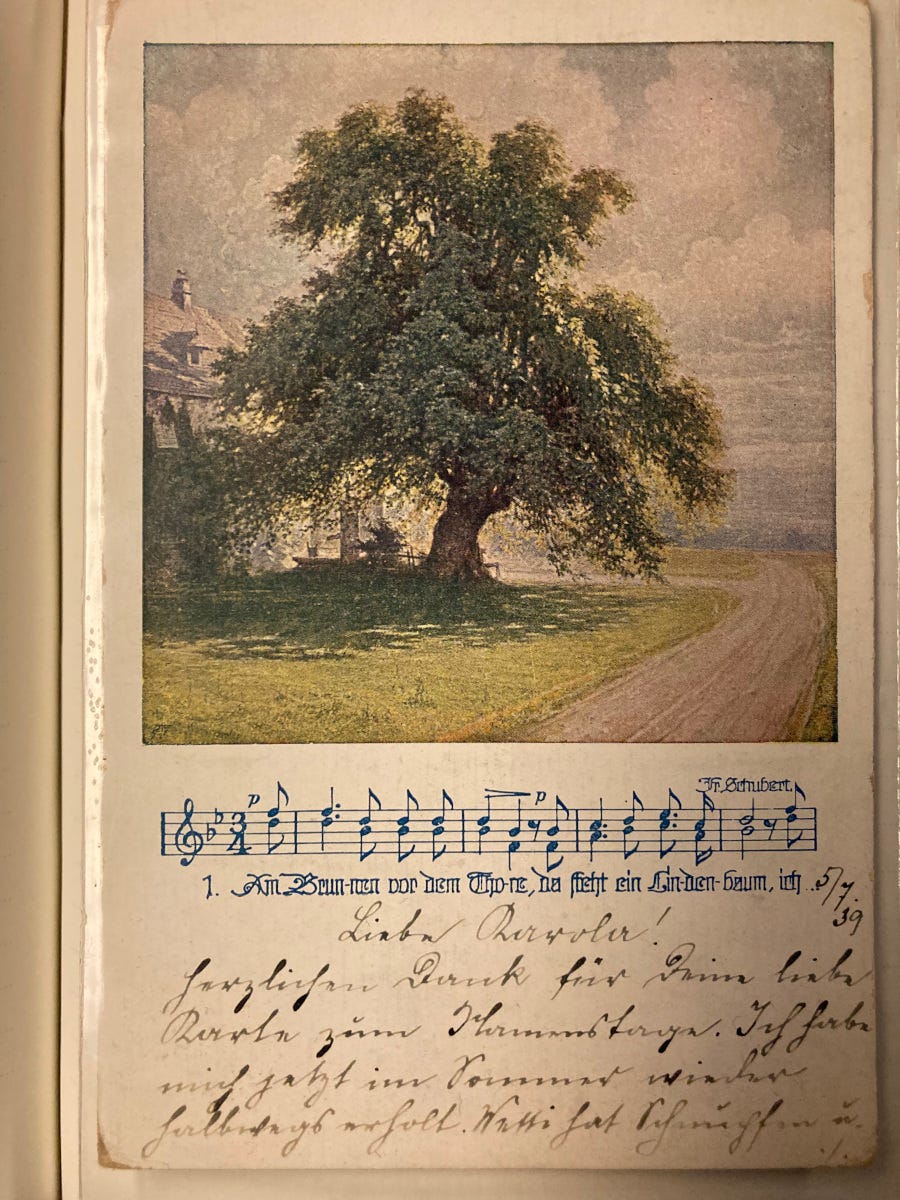 Fr. Schubert.
p
p
3
4
1. Am Brun-nen vor dem Tho-re, da steht ein Lin-den-baum, ich...
5/7.
39
Liebe Karola!
herzlichen Dank für Deine liebe
Karte zum Namenstage. Ich habe
mich jetzt im Sommer wieder
halbwegs erholt. Netti hat Schnupfen u.
./.